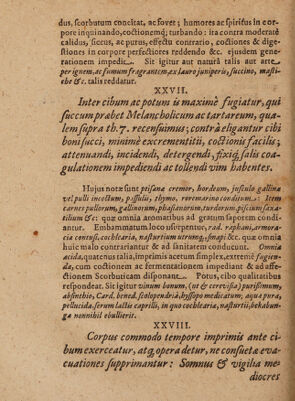 dus, scorbutum concitat, ac fovet; humores ac spiritus in cor-
pore inquinando, coctionemq; turbando: ita contra moderatè
calidus, siccus, ac purus, effectu contrario, coctiones & dige-
stiones in corpore perfectiores reddendo &c. ejusdem gene-
rationem impedit. Sit igitur aut naturâ talis aut arte
per ignem, ac fumum fragrantem, ex lauro juniperis, succino, masti-
che &c. talis reddatur.
XXVII.
Inter cibum ac potum is maximè fugiatur, qui
succum præbet Melancholicum ac tartareum, qua-
lem supra th. 7. recensuimus; contrà eligantur cibi
boni succi, minimè excrementitii, coctionis facilis;
attenuandi, incidendi, detergendi, fixiq; salis coa-
gulationem impediendi ac tollendi vim habentes.
Hujus notæ sunt ptisana cremor, hordeum, jusculo gallina
vel pulli incectum, passulis, thymo, roremarino condimentatum; Item
carnes pullorum, gallinarum, phasianorum, turdorum, piscium saxa-
tilium &c: quæ omnia aromatibus ad gratum saporem condi-
antur. Embammatum loco usurpentur, rad. raphani, armora-
cia contusi, cochlearia, nasturtium utrumq;, sinapi &c. quæ omnia
huic malo contrariantur & ad sanitatem conducunt. Omnia
acida, quatenus talia, imprimis acetum simplex, extremè fugien-
da, cum coctionem ac fermentationem impediant & ad affe-
ctionem Scorbuticam disponant. Potus, cibo qualitatibus
respondeat. Sit igitur vinum bonum, (ut & cerevisia) purissimum,
absinthio, Card. bened. scolopendriâ, hyssopo medicatum; aqua pura,
pellucida, serum lactis caprilli, in quo cochlearia, nasturtii, bekabun-
ga nonnihil ebullierit.
XXVIII.
Corpus commodo tempore imprimis ante ci-
bum exerceatur, atq; opera detur, ne consuetæ eva-
cuationes supprimantur: Somnus & vigilia me-
diocres